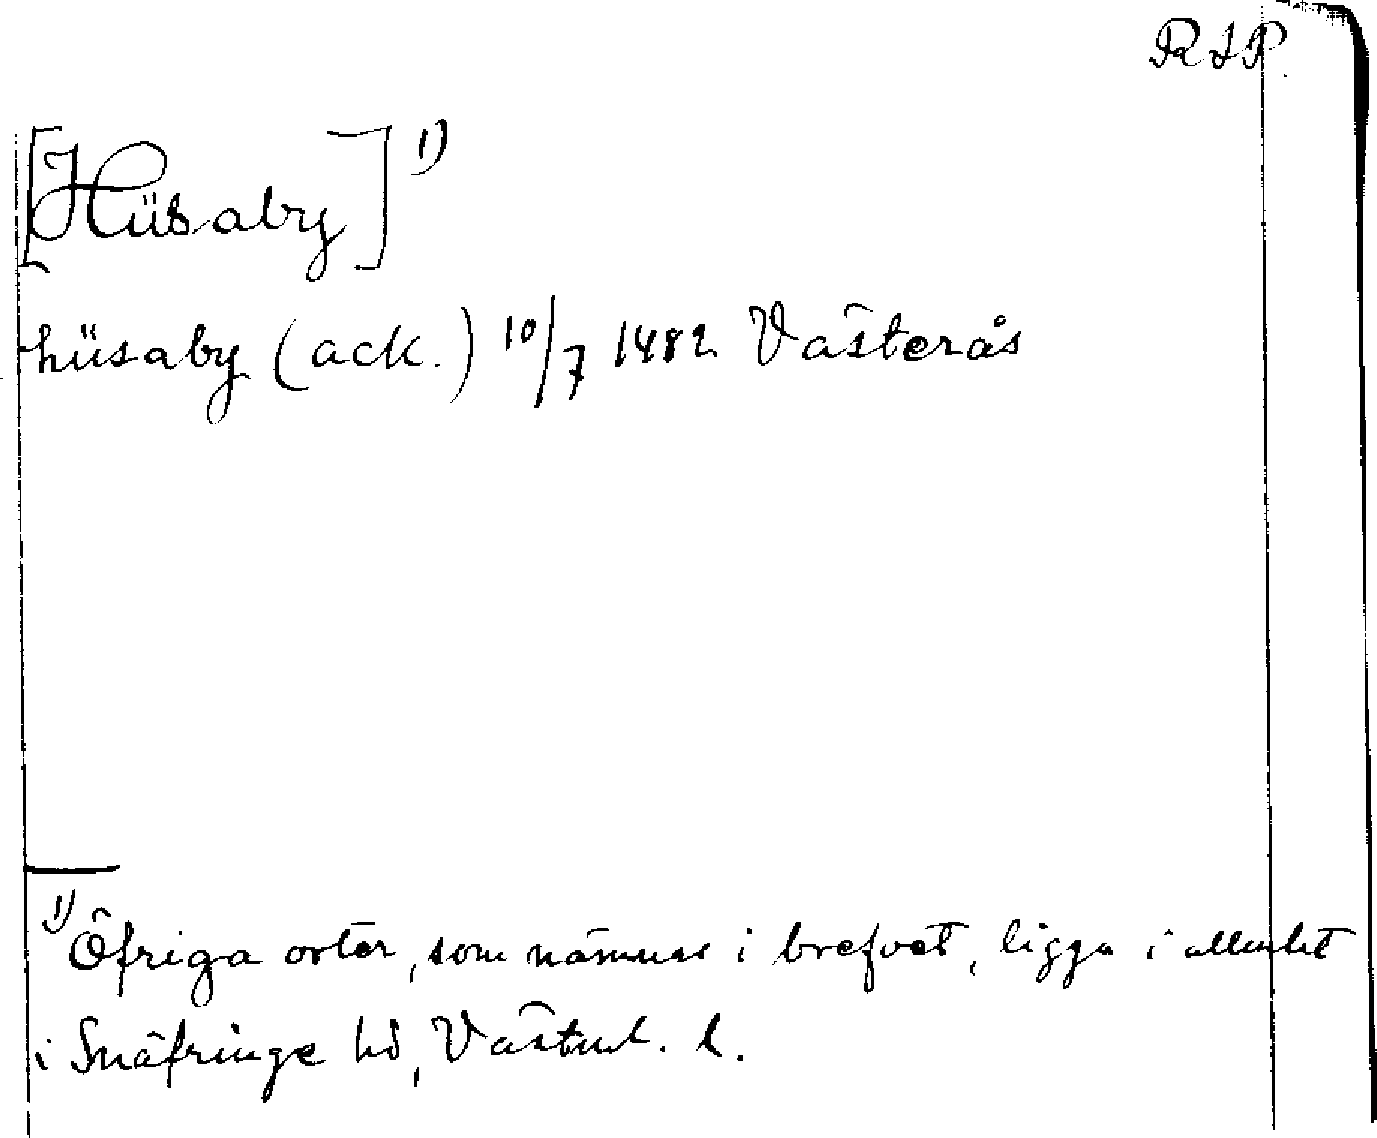 RAP.
[Hüsaby] 1)
hüsaby (ack.) 10/7 1482 Västerås
1) Öfriga orter, som nämnas i brefvet, ligga i allmhet
i Snäfringe hd, Västml. l.